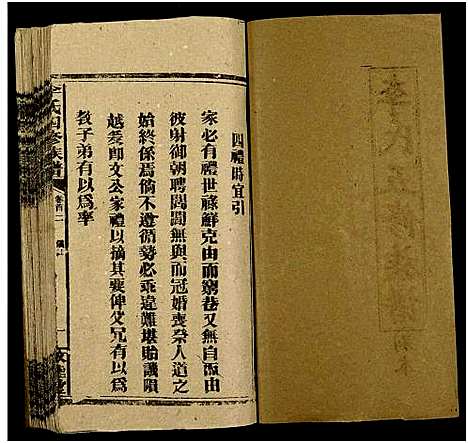 四禮時宜引
家必有禮世祿鮮克由而窮巷又無自飯由
彼射御朝聘閭閻無與而冠婚喪祭人道之
始終係焉倘不遵循勢必乖違難堪貽譏隕
越爰卽文公家禮以摘其要俾父兄有以爲
教子弟有以爲率
李氏四修族譜
卷首二